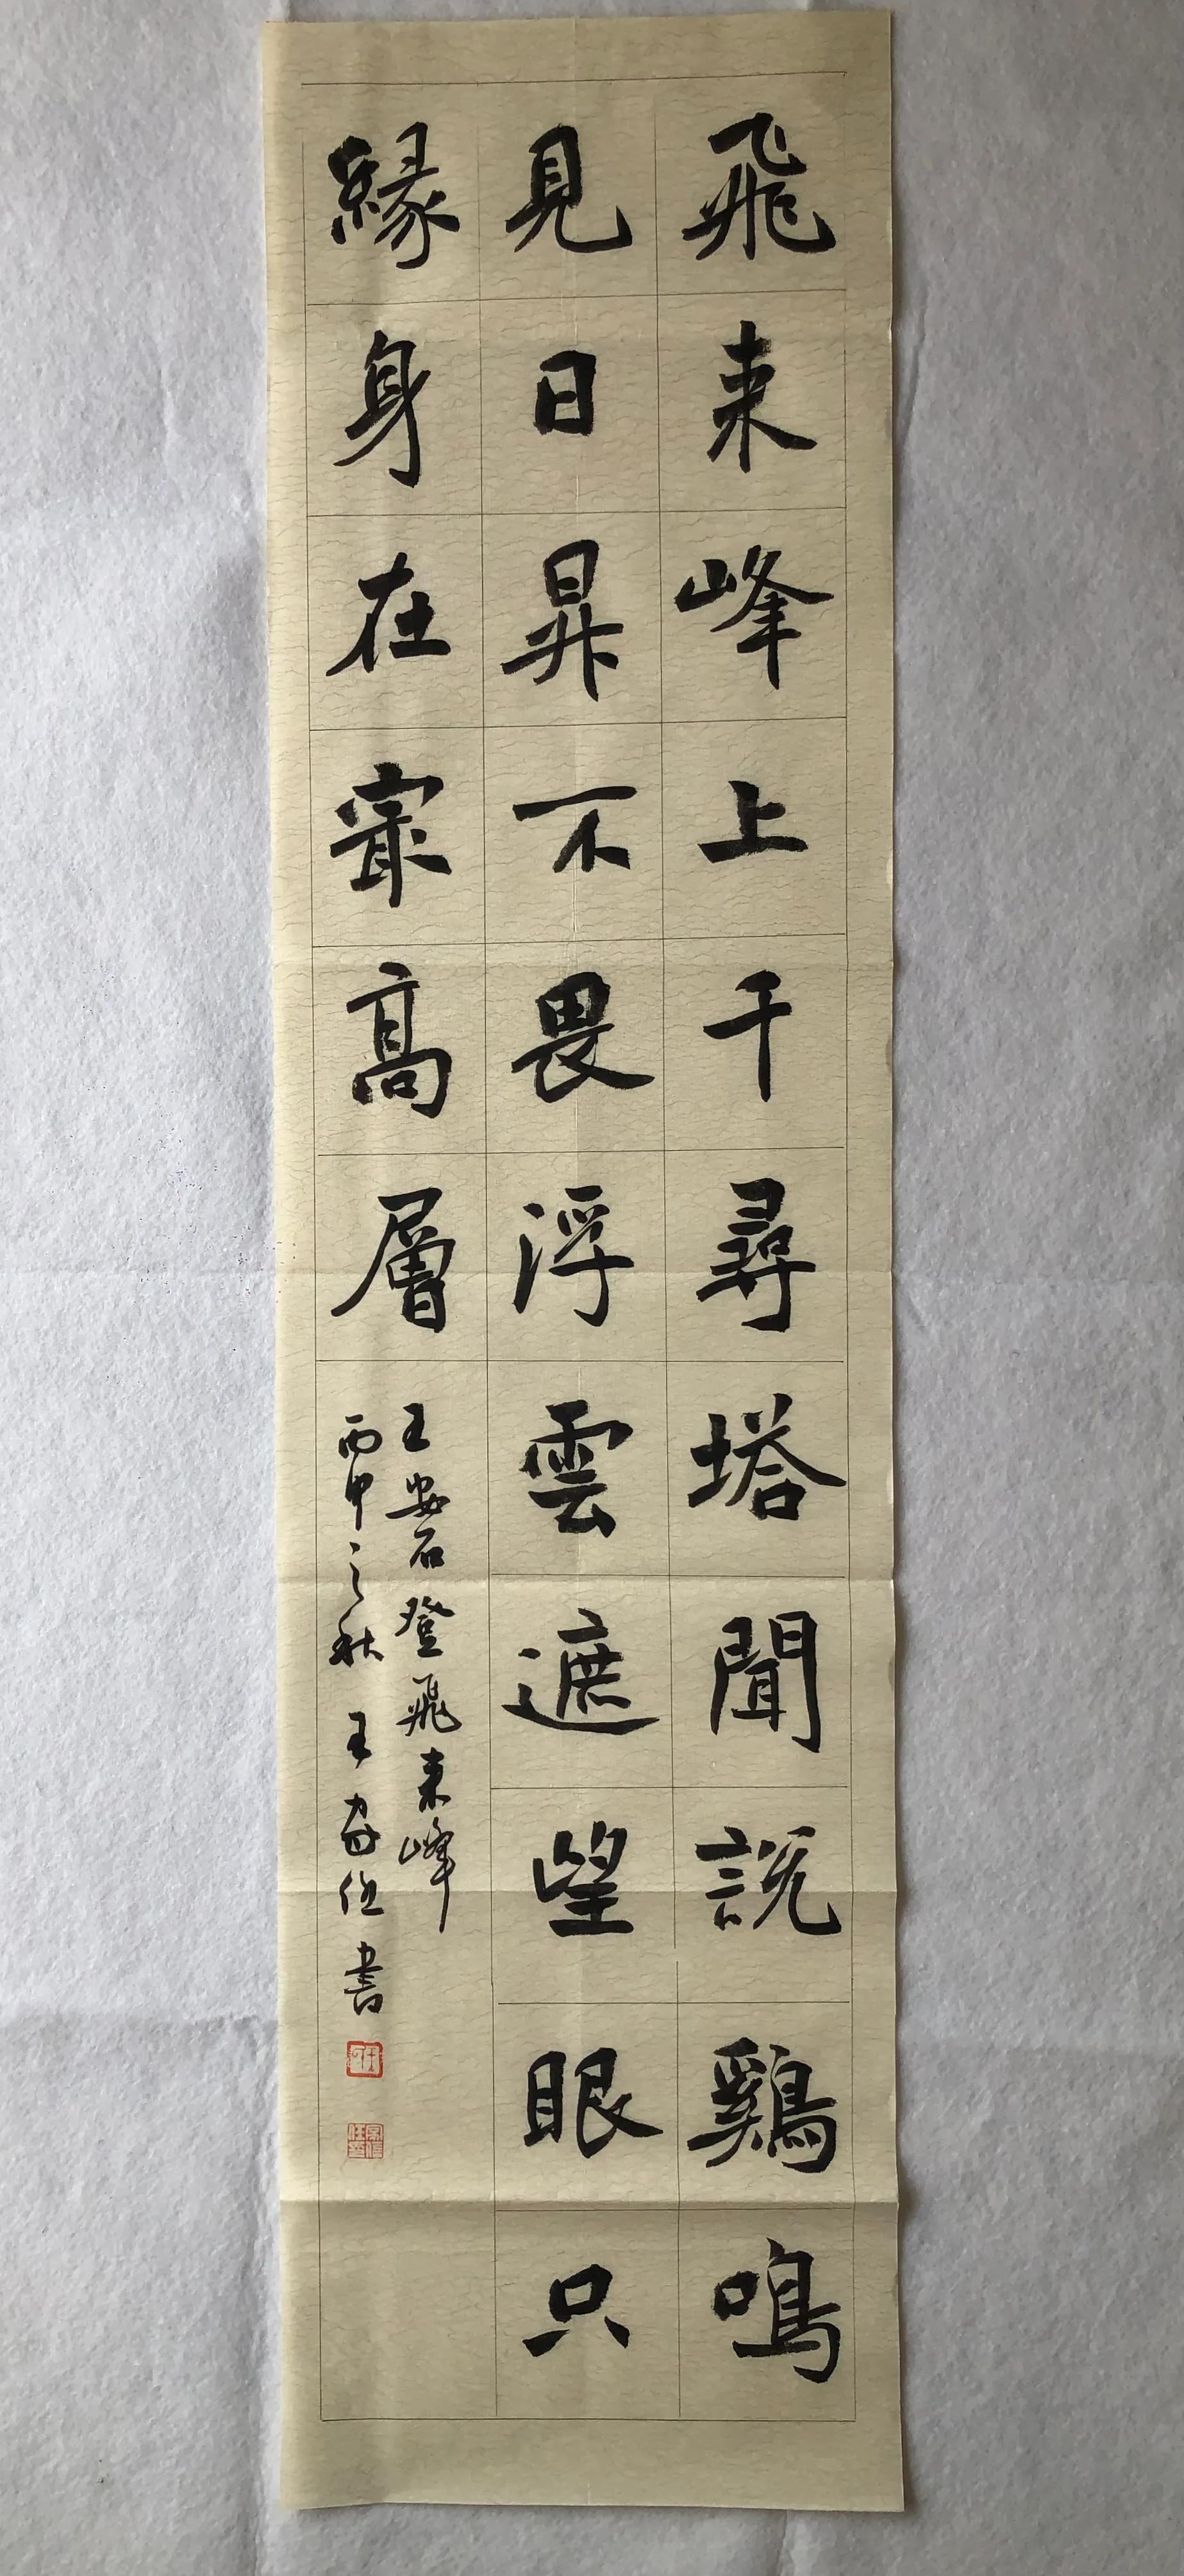 飛来峰上千尋塔聞說鷄鳴
見日昇不畏浮雲遮望眼只
緣身在寂高層
王安石登飛来峰
丙申之秋王家恆書